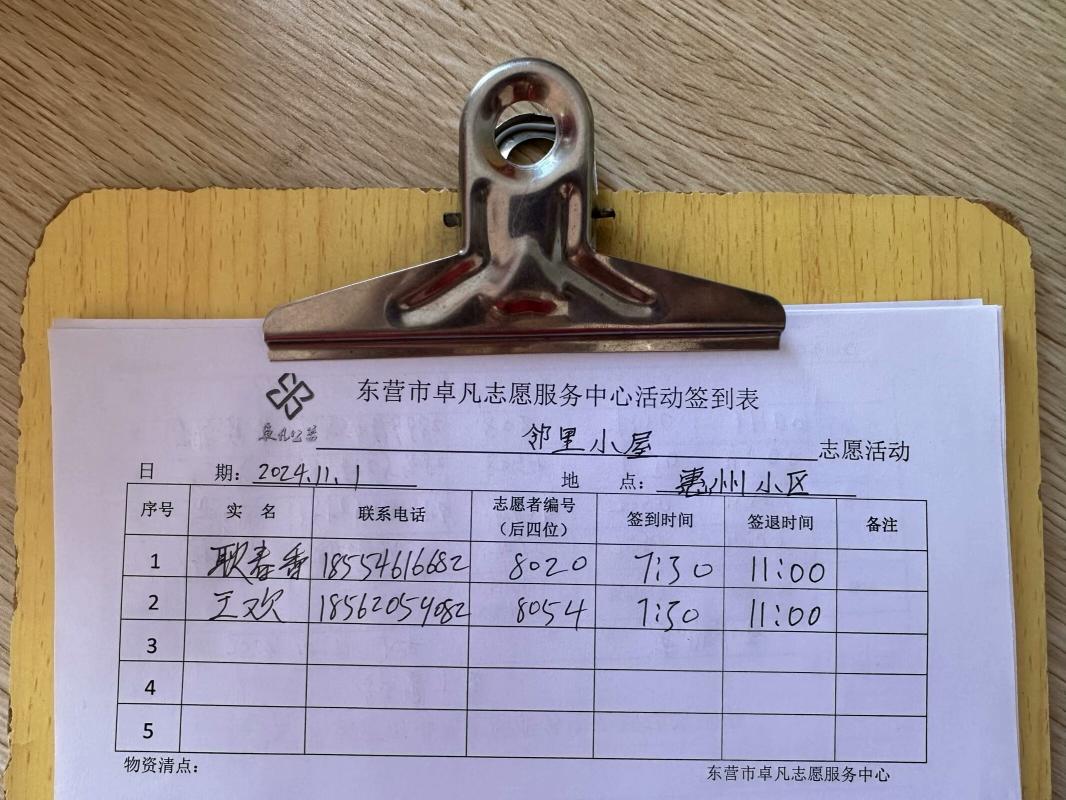 卓凡公益
东营市卓凡志愿服务中心活动签到表
邻里小屋 志愿活动
日 期：2024.11.1 地 点：惠州小区
序号 实 名 联系电话 志愿者编号（后四位） 签到时间 签退时间 备注
1 耿春香 18554616682 8020 7:30 11:00
2 王欢 18562054082 8054 7:30 11:00
3
4
5
物资清点：
东营市卓凡志愿服务中心